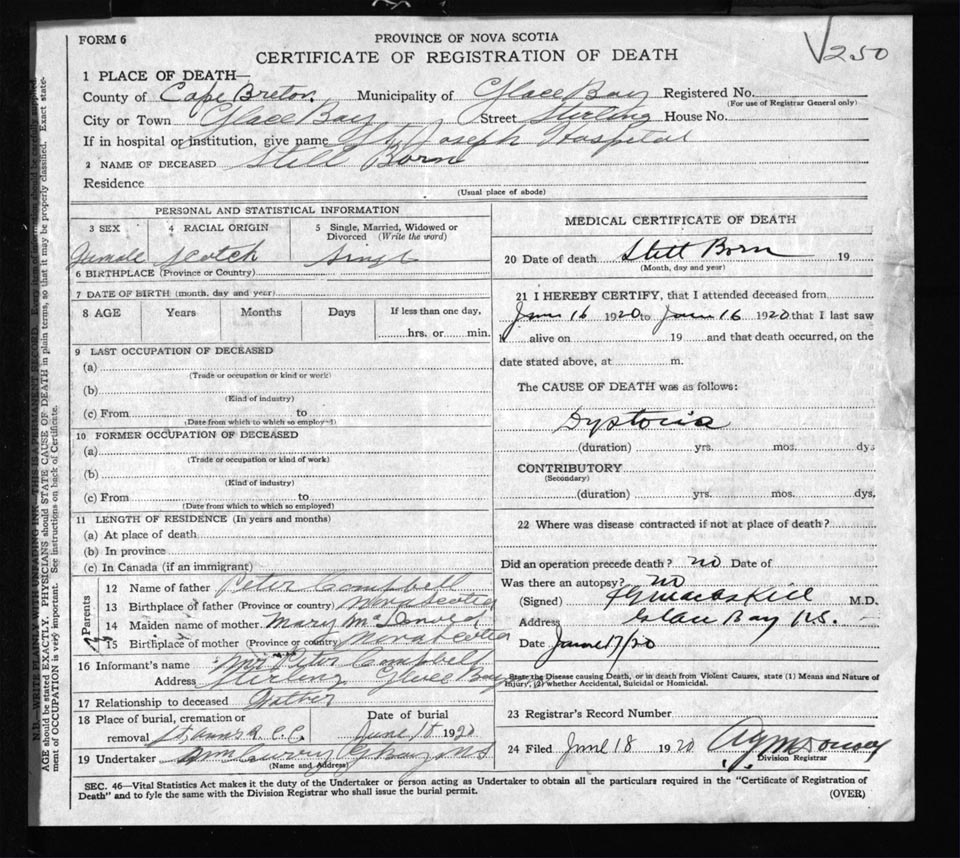 FORM 6
PROVINCE OF NOVA SCOTIA
250
CERTIFICATE OF REGISTRATION OF DEATH
1 PLACE OF DEATH—
County of Cape Breton. Municipality of Glace Bay Registered No.
(For use of Registrar General only)
City or Town Glace Bay Street Sterling House No.
If in hospital or institution, give name St Joseph Hospital
2 NAME OF DECEASED Still Born
Residence
(Usual place of abode)
PERSONAL AND STATISTICAL INFORMATION
3 SEX 4 RACIAL ORIGIN 5 Single, Married, Widowed or Divorced (Write the word)
Female Scotch Singl
6 BIRTHPLACE (Province or Country)
7 DATE OF BIRTH (month, day and year)
8 AGE Years Months Days If less than one day,
hrs. or min.
9 LAST OCCUPATION OF DECEASED
(a)
(Trade or occupation or kind or work)
(b)
(Kind of industry)
(c) From to
(Date from which to which so employed)
10 FORMER OCCUPATION OF DECEASED
(a)
(Trade or occupation or kind of work)
(b)
(Kind of industry)
(c) From to
(Date from which to which so employed)
11 LENGTH OF RESIDENCE (In years and months)
(a) At place of death
(b) In province
(c) In Canada (if an immigrant)
Parents
12 Name of father Peter Campbell
13 Birthplace of father (Province or country) Nova Scotia
14 Maiden name of mother. Mary McDonald
15 Birthplace of mother (Province or country) Nova Scotia
16 Informant's name Mr Peter Campbell
Address Stirling Glace Bay
17 Relationship to deceased Father
18 Place of burial, cremation or Date of burial
removal St. Anns R.C.C. June 18 1920
19 Undertaker Wm Curry G Bay NS
(Name and Address)
MEDICAL CERTIFICATE OF DEATH
20 Date of death Still Born 19
(Month, day and year)
21 I HEREBY CERTIFY, that I attended deceased from
June 16 1920 to June 16 1920 that I last saw
h alive on 19 and that death occurred, on the
date stated above, at m.
The CAUSE OF DEATH was as follows:
Dystocia
(duration) yrs. mos. dys
CONTRIBUTORY
(Secondary)
(duration) yrs. mos. dys.
22 Where was disease contracted if not at place of death?
Did an operation precede death? no Date of
Was there an autopsy? no
(Signed) M.D.
Address Glace Bay N.S.
Date June 17/20
State the Disease causing Death, or in death from Violent Causes, state (1) Means and Nature of
Injury, (2) whether Accidental, Suicidal or Homicidal.
23 Registrar's Record Number
24 Filed June 18 1920
Division Registrar
SEC. 46—Vital Statistics Act makes it the duty of the Undertaker or person acting as Undertaker to obtain all the particulars required in the "Certificate of Registration of
Death" and to fyle the same with the Division Registrar who shall issue the burial permit.
(OVER)
N.B.—WRITE PLAINLY WITH UNFADING INK—THIS IS A PERMANENT RECORD. Every item of information should be carefully supplied.
AGE should be stated EXACTLY. PHYSICIANS should STATE CAUSE OF DEATH in plain terms, so that it may be properly classified. Exact state-
ment of OCCUPATION is very important. See instructions on back of Certificate.